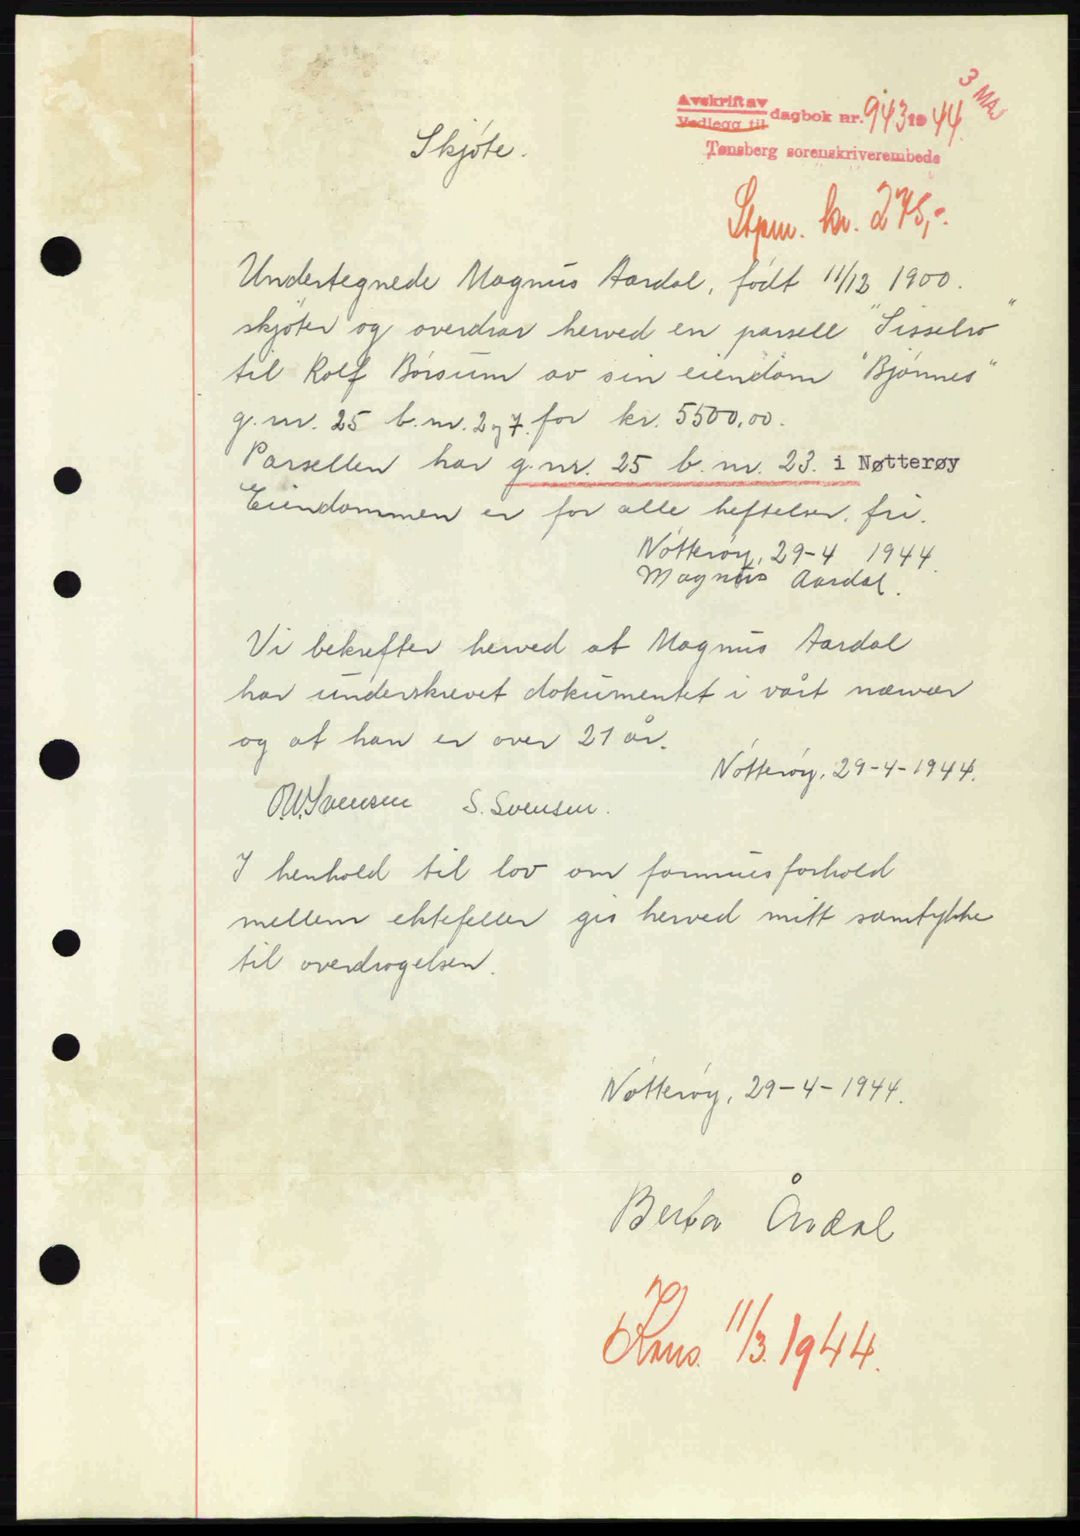 3 MAI
Avskrift av
Vedlegg til
dagbok nr. 943 1944.
Tønsberg sorenskriverembede
Skjøte.
Stpm. kr. 275,-.
Undertegnede Magnus Aardal, født 11/12 1900.
skjøter og overdrar herved en parsell "Sisselro"
til Rolf Børsum av sin eiendom "Bjønnes"
g.nr. 25 b.nr. 2 og 7. for kr. 5500,00.
Parsellen har g.nr. 25 b.nr. 23. i Nøtterøy
Eiendommen er for alle heftelser fri.
Nøtterøy, 29-4 1944.
Magnus Aardal.
Vi bekrefter herved at Magnus Aardal
har underskrevet dokumentet i vårt nærvær
og at han er over 21 år.
Nøtterøy, 29-4-1944.
O.W.Svensen S. Svensen.
I henhold til lov om formuesforhold
mellem ektefeller gis herved mitt samtykke
til overdragelsen.
Nøtterøy, 29-4-1944.
Berta Årdal
Kons. 11/3. 1944.